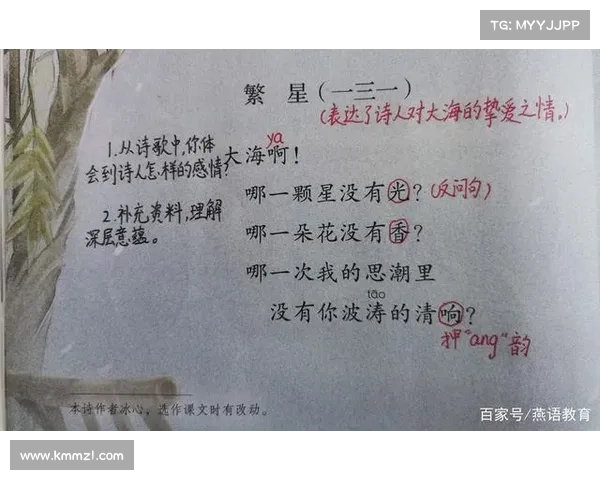 TG: MYYJJPP
繁 星(一三一)
(表达了诗人对大海的挚爱之情。)
1.从诗歌中,你体
会到诗人怎样的感情?
2.补充资料,理解
深层意蕴。
ya
大海啊!
哪一颗星没有光?(反问句)
哪一朵花没有香?
哪一次我的思潮里
tāo
没有你波涛的清响?
押"ang"韵
本诗作者冰心,选作课文时有改动。
百家号/燕语教育
www.kmmzl.com